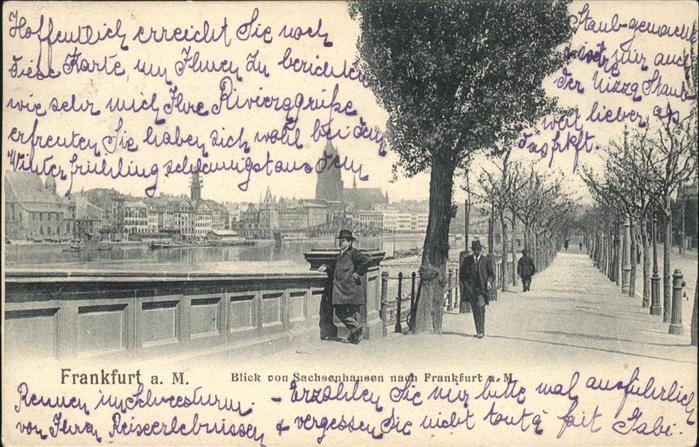 Hoffentlich erreicht Sie noch
diese Karte, um Ihnen zu berichten
wie sehr mich Ihre Rivieragrüße
erfreuten. Sie haben sich wohl bei dem
Winterfrühling schleunigst aus dem
Staub gemacht
wäre mir auch
der Nizza Staub
weit lieber, als
das Frkft.
Frankfurt a. M.
Blick von Sachsenhausen nach Frankfurt a. M.
Rennen im Schneesturm. - Erzählen Sie mir bitte mal ausführlich
von Ihren Reiseerlebnissen & vergessen Sie nicht tout à fait Gabi.